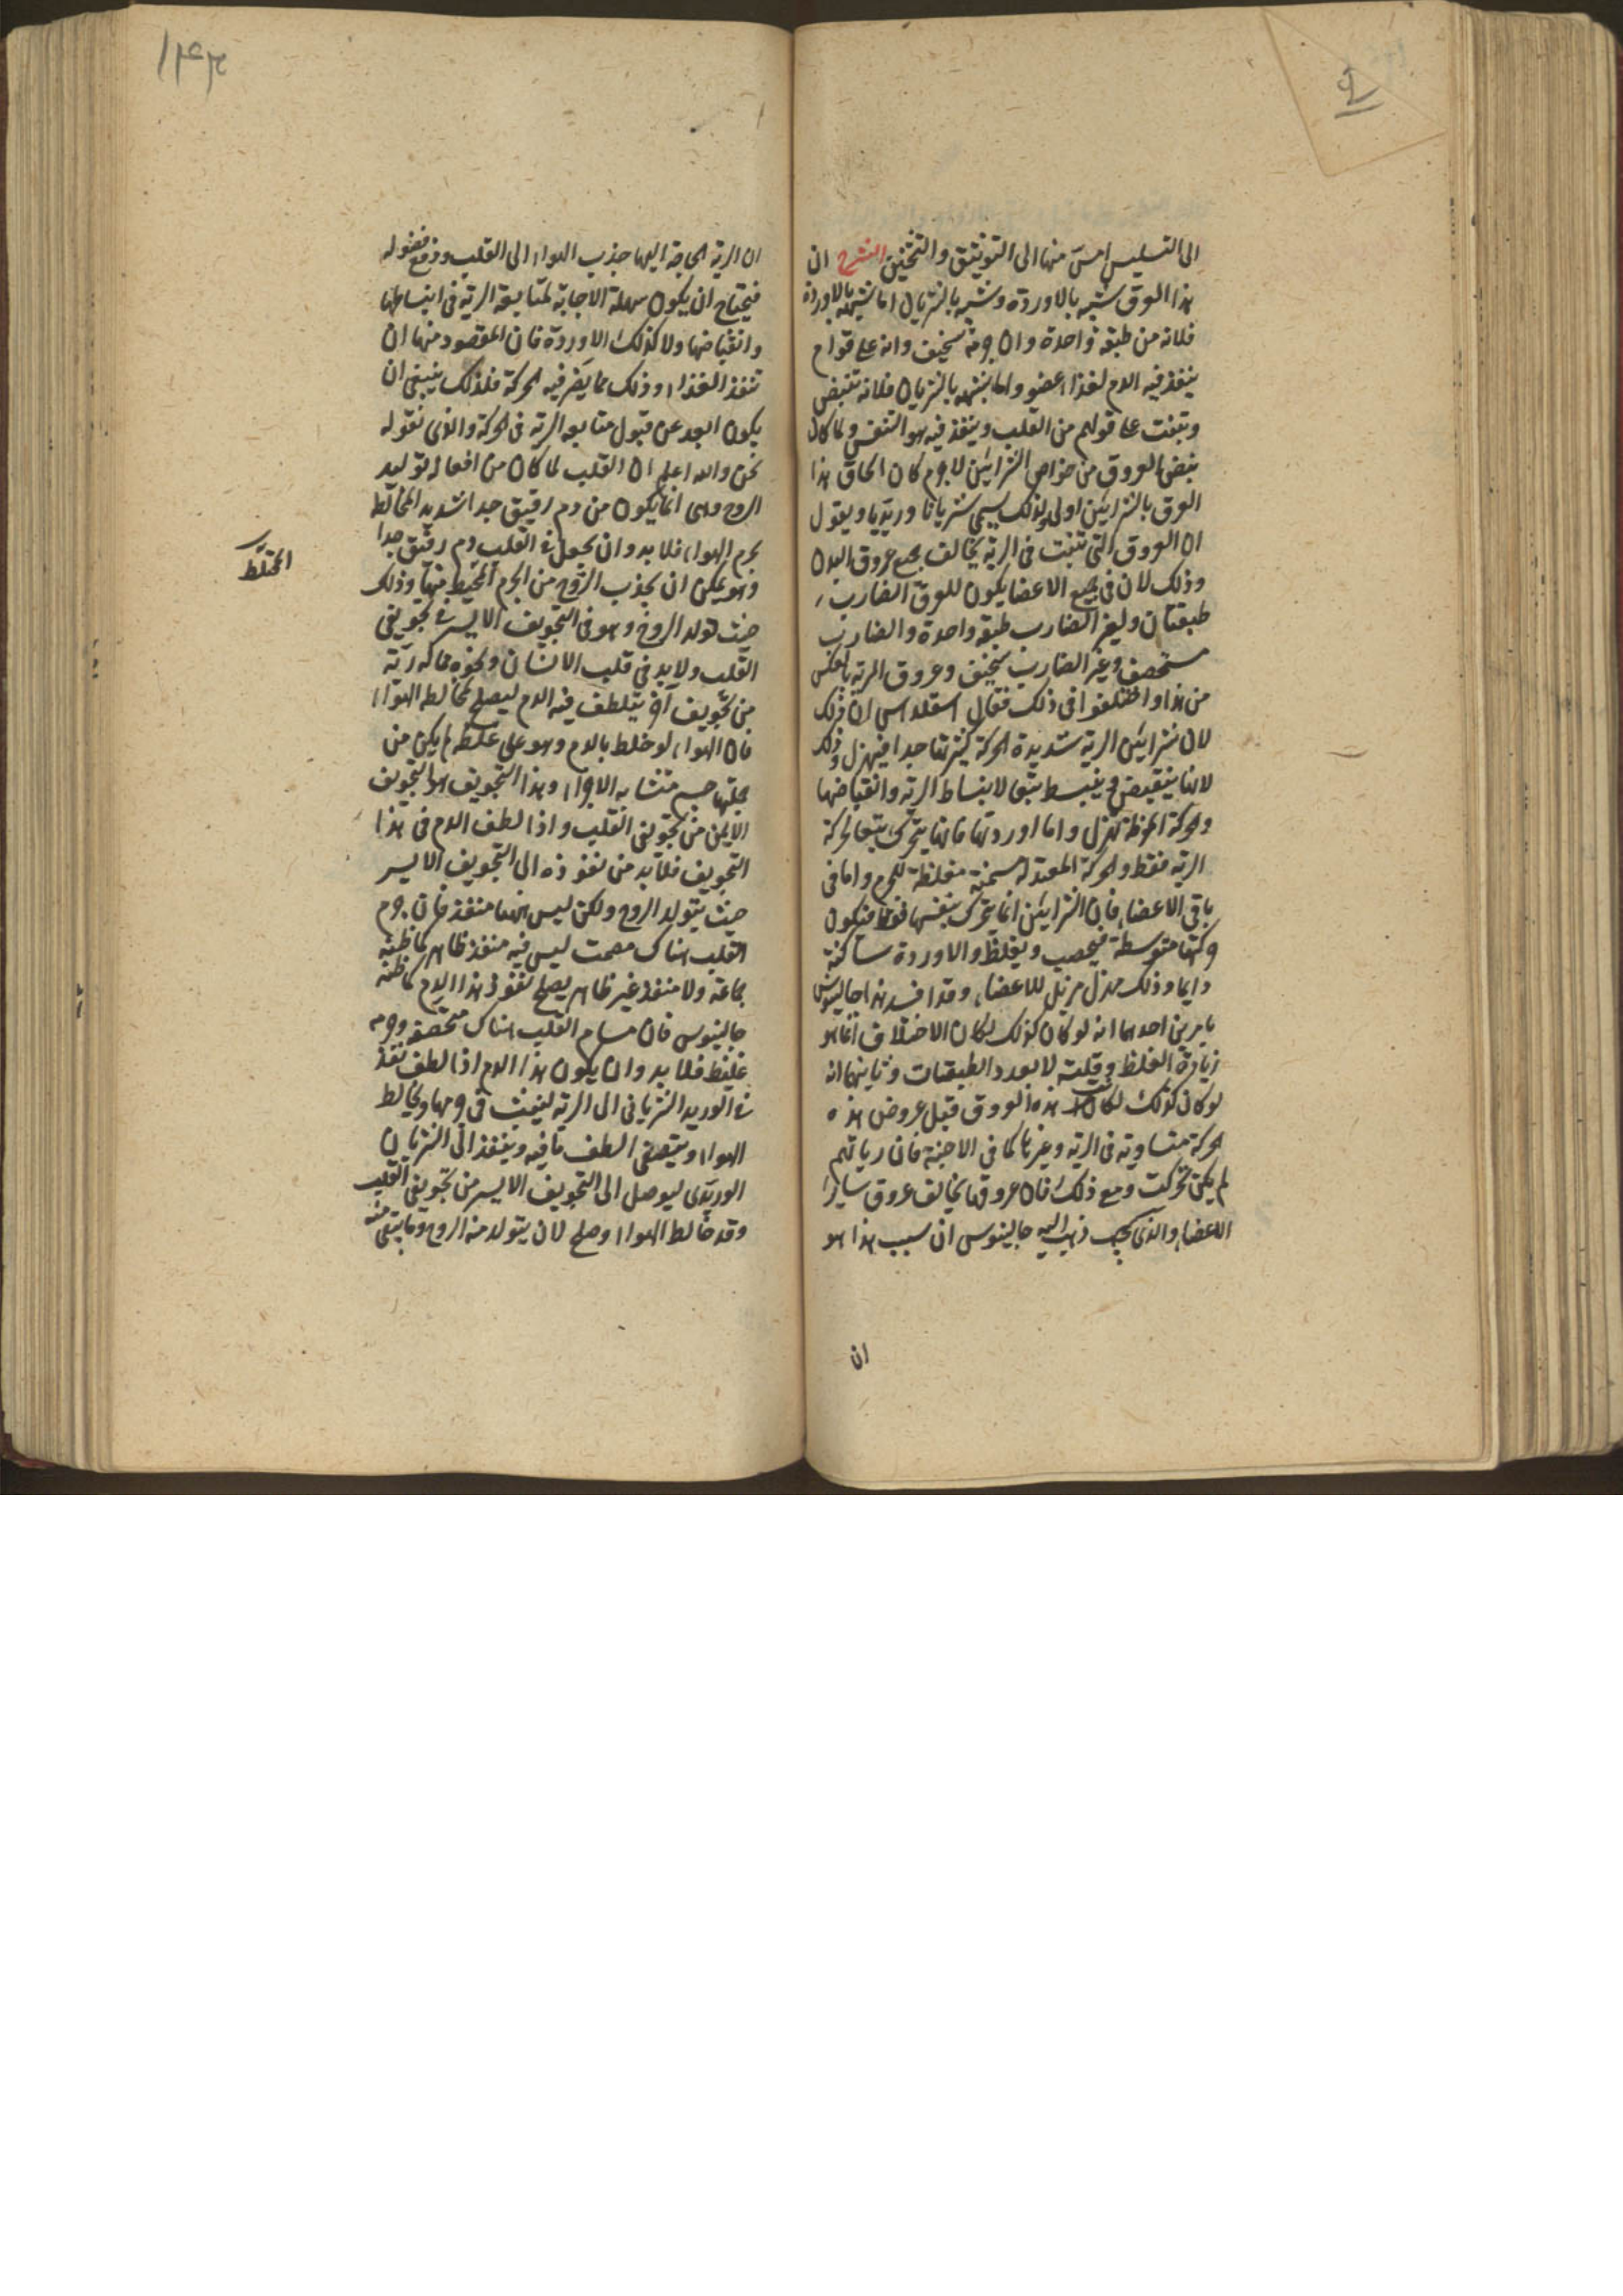 الى التسليس امس منها الى التوثيق والتثخين الشرح ان
هذا العرق شبيه بالاوردة وشبيه بالشريان اما شبهه بالاوردة
فلانه من طبقة واحدة وان جرمه سخيف وانه على قوام
ينفذ فيه الدم لغذاء عضو واما شبهه بالشريان فلانه ينبض
وينبت على قولهم من القلب وينفذ فيه هو التنفس ولما كان
نبض العروق من خواص الشرايين لا جرم كان الحاق هذا
العرق بالشرايين اولى ولذلك يسمى شريانا وريديا ويقول
ان العروق التي تنبت في الرية يخالف جميع عروق البدن
وذلك لان في جميع الاعضا يكون للعرق الضارب
طبقتان ولغير الضارب طبقة واحدة والضارب
مستحصف وغير الضارب سخيف وعروق الرية بالعكس
من هذا واختلفوا في ذلك فقال اسقلداس ان ذلك
لان شرايين الرية شديدة الحركة كثيرتها جدا فيهزل وذلك
لانها ينقبض وينبسط تبعا لانبساط الرية وانقباضها
والحركة المفرطة تهزل واما اوردتها فانها يتحرك تبعا لحركة
الرية فقط والحركة المعتدلة مسخنة مغلظة للجرم واما في
باقي الاعضاء فان الشرايين انما يتحرك بنفسها فقط فيكون
حركتها متوسطة فيخصب ويغلظ والاوردة ساكنة
دايما وذلك مهزل مرنل للاعضاء وقد افسد هذا جالينوس
بامرين احدهما انه لو كان كذلك لكان الاختلاف انما هو
زيادة الغلظ وقلته لا بعدد الطبقات وثانيهما انه
لو كان كذلك لكانت هذه العروق قبل عروض هذه
الحركة متساوية في الرية وغيرها كما في الاجنة فان رياتهم
لم يكن تحركت ومع ذلك فان عروقها يخالف عروق ساير
الاعضاء والذي ذهب اليه جالينوس ان سبب هذا هو
ان
ان الرية الحاجة اليها جذب الهواء الى القلب ودفع فضوله
فيحتاج ان يكون سهلة الاجابة لمتابعة الرية في انبساطها
وانقباضها ولا كذلك الاوردة فان المقصود منها ان
تنفذ الغذاء وذلك مما يضر فيه الحركة فلذلك ينبغي ان
يكون ابعد عن قبول متابعة الرية في الحركة والذي نقوله
نحن والله اعلم ان القلب لما كان من افعاله توليد
الروح وهي انما يكون من دم رقيق جدا شديد المخالطة
لجرم الهواء فلا بد وان يجعل في القلب دم رقيق جدا
وهو يمكن ان يجذب الروح من الجرم المحيط منها وذلك
المختلط
حيث تولد الروح وهو في التجويف الايسر من تجويفي
القلب ولا بد في قلب الانسان ونحوه مما له رية
من تجويف آخر يتلطف فيه الدم ليصلح لمخالطة الهواء
فان الهواء لو خلط بالدم وهو على غلظه لم يكن من
جملتها جسم متشابه الاجزاء وهذا التجويف هو التجويف
الايمن من تجويفي القلب واذا لطف الدم في هذا
التجويف فلا بد من نفوذه الى التجويف الايسر
حيث يتولد الروح ولكن ليس بينهما منفذ فان جرم
القلب هناك مصمت ليس فيه منفذ ظاهر كما ظنه
جماعة ولا منفذ غير ظاهر يصلح لنفوذ هذا الدم كما ظنه
جالينوس فان مسام القلب هناك مستحصفة وجرمه
غليظ فلا بد وان يكون هذا الدم اذا لطف نفذ
في الوريد الشرياني الى الرية لينبث في جرمها ويخالط
الهواء ويتصفى الطف ما فيه وينفذ الى الشريان
الوريدي ليوصل الى التجويف الايسر من تجويفي القلب
وقد خالط الهواء وصلح لان يتولد منه الروح وما يبقى منه